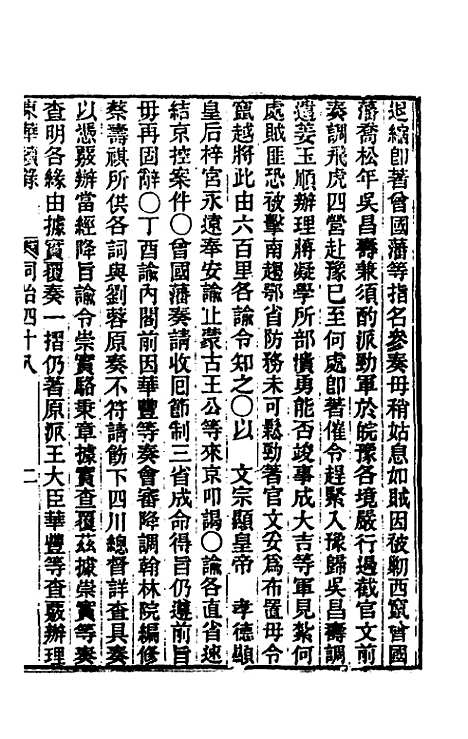 退縮卽著曾國藩等指名參奏毋稍姑息如賊因被勦西竄曾國
藩喬松年吳昌壽兼須酌派勁軍於皖豫各境嚴行遏截官文前
奏調飛虎四營赴豫已至何處卽著催令趕緊入豫歸吳昌壽調
遣姜玉順辦理蔣凝學所部撗勇能否竣事成大吉等軍見紮何
處賊匪恐被擊南趨鄂省防務未可鬆勁著官文妥爲布置毋令
竄越將此由六百里各諭令知之〇以 文宗顯皇帝 孝德顯
皇后梓宮永遠奉安諭止蒙古王公等來京叩謁〇諭各直省速
結京控案件〇曾國藩奏請收回節制三省成命得旨仍遵前旨
毋再固辭〇丁酉諭內閣前因華豐等奏會審降調翰林院編修
蔡壽祺所供各詞與劉蓉原奏不符請飭下四川總督詳查具奏
以憑覈辦當經降旨諭令崇實駱秉章據實查覆茲據崇實等奏
查明各緣由據實覆奏一摺仍著原派王大臣華豐等查覈辦理
東華續錄 同治四十八 二